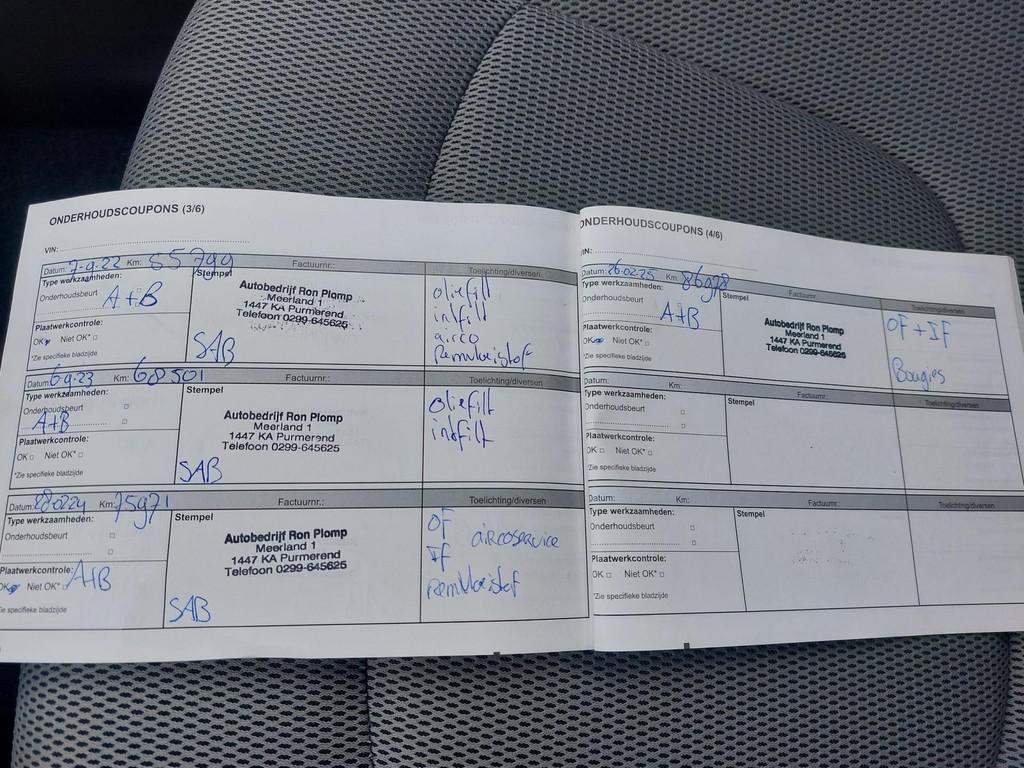 ONDERHOUDSCOUPONS (3/6)
VIN:
Datum: 7-9-22 Km: 55799 Factuurnr.: Toelichting/diversen
Type werkzaamheden: Stempel
Onderhoudsbeurt A+B
Plaatwerkcontrole:
OK Niet OK*
*Zie specifieke bladzijde
Autobedrijf Ron Plomp
Meerland 1
1447 KA Purmerend
Telefoon 0299-645625
SAB
oliefilt
intfilt
airco
Remvloeistof
Datum: 6-9-23 Km: 68501 Factuurnr.: Toelichting/diversen
Type werkzaamheden: Stempel
Onderhoudsbeurt
A+B
Plaatwerkcontrole:
OK Niet OK*
*Zie specifieke bladzijde
Autobedrijf Ron Plomp
Meerland 1
1447 KA Purmerend
Telefoon 0299-645625
SAB
oliefilt
intfilt
Datum: 280224 Km: 75971 Factuurnr.: Toelichting/diversen
Type werkzaamheden: Stempel
Onderhoudsbeurt
Plaatwerkcontrole:
OK Niet OK* A+B
Zie specifieke bladzijde
Autobedrijf Ron Plomp
Meerland 1
1447 KA Purmerend
Telefoon 0299-645625
SAB
OF aircoservice
IF
Remvloeistof
ONDERHOUDSCOUPONS (4/6)
VIN:
Datum: 26-02-25 Km: 86978 Factuurnr.: Toelichting/diversen
Type werkzaamheden: Stempel
Onderhoudsbeurt
A+B
Plaatwerkcontrole:
OK Niet OK*
*Zie specifieke bladzijde
Autobedrijf Ron Plomp
Meerland 1
1447 KA Purmerend
Telefoon 0299-645625
OF + IF
Bougies
Datum: Km: Factuurnr.: Toelichting/diversen
Type werkzaamheden: Stempel
Onderhoudsbeurt
Plaatwerkcontrole:
OK Niet OK*
*Zie specifieke bladzijde
Datum: Km: Factuurnr.: Toelichting/diversen
Type werkzaamheden: Stempel
Onderhoudsbeurt
Plaatwerkcontrole:
OK Niet OK*
*Zie specifieke bladzijde